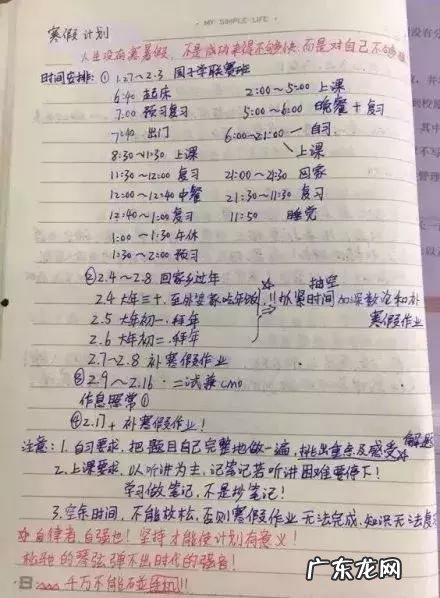 MY SIMPLE LIFE
寒假计划
人生没有寒暑假,不是成功来得不够快,而是对自己不够狠
时间安排:① 1.27~2.3 国子学联赛班
6:40 起床 2:00~5:00 上课
7:00 预习复习 5:00~6:00 晚餐+复习
7:40 出门 6:00~21:00 一 自习
8:30~11:30 上课 上课
11:30~12:00 复习 21:00~21:30 回家
12:00~12:40 中餐 21:30~11:30 复习
12:40~1:00 复习 11:50 睡觉
1:00~1:30 午休
1:30~2:00 预习
② 2.4~2.8 回家乡过年
2.4 大年三十.至外婆家吃年饭 !! 抓紧时间加深数论和补
抽空
寒假作业
2.5 大年初一.拜年
2.6 大年初二.拜年
2.7~2.8 补寒假作业
③ 2.9~2.16 二试兼CMO
作息照常①
④ 2.17+ 补寒假作业!
注意:1.自习要求,把题目自己完整地做一遍,挑出重点及感受
2.上课要求,以听讲为主,记笔记若听讲困难要停下!
学习做笔记,不是抄笔记!
3.空余时间,不能放松,否则寒假作业无法完成,知识无法复
自律者 自强也!坚持才能使计划有意义!
松弛的琴弦弹不出时代的强音!
千万不能碰手机!!!
广东龙网